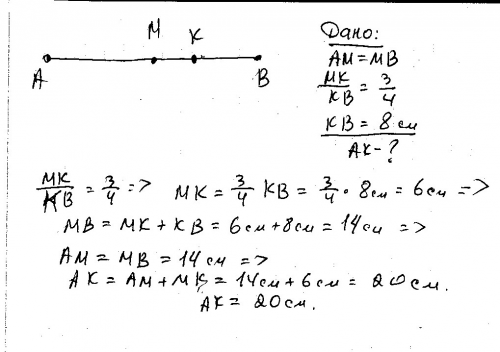 M K
A B
Дано:
AM = MB
MK/KB = 3/4
KB = 8 см
AK - ?
MK/KB = 3/4 => MK = 3/4 KB = 3/4 · 8см = 6 см =>
MB = MK + KB = 6см + 8см = 14 см =>
AM = MB = 14 см =>
AK = AM + MK = 14 см + 6 см = 20 см.
AK = 20 см.